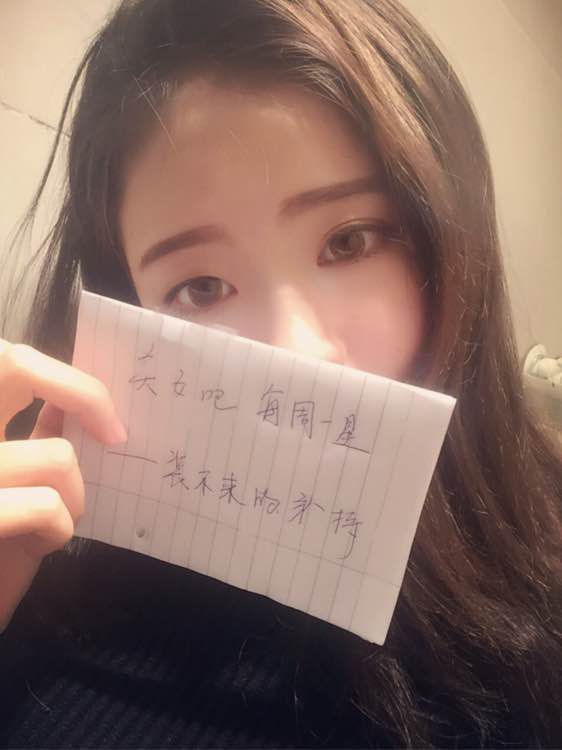 美女吧 每周一星
一装不来的矜持